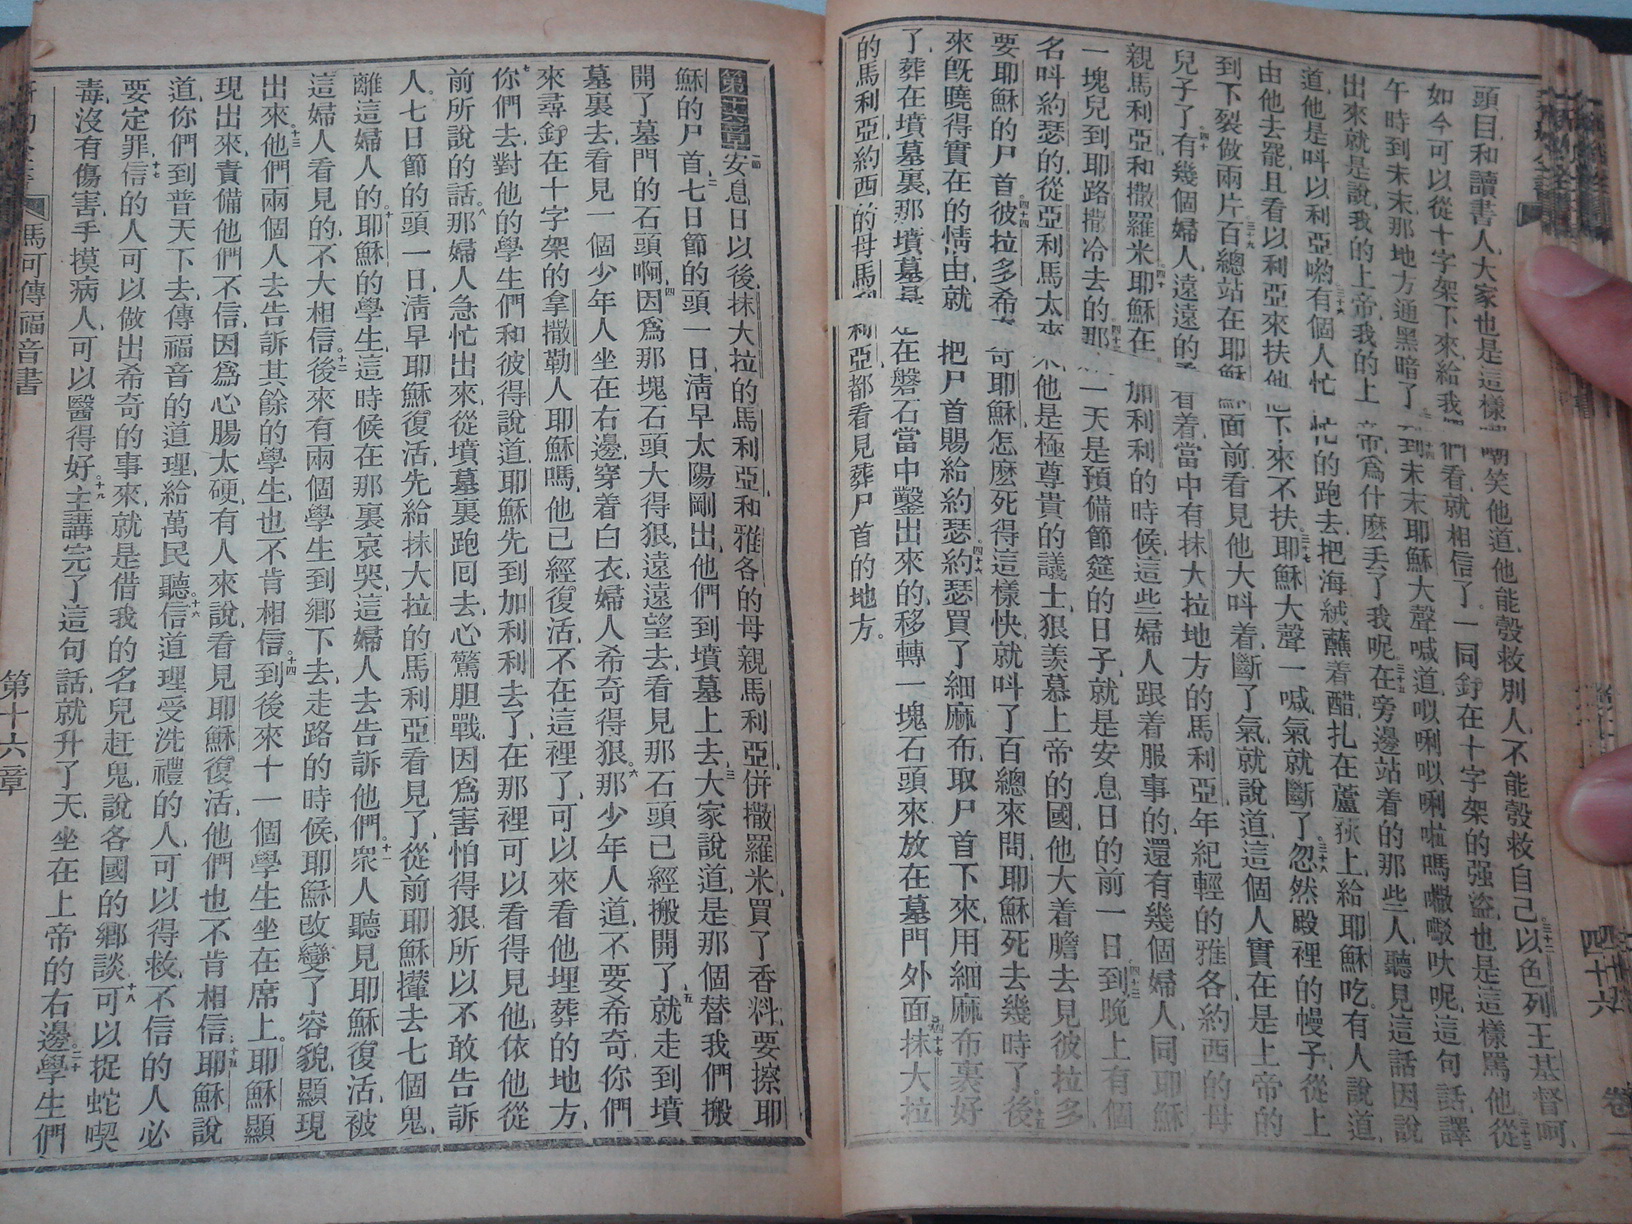 頭目和讀書人大家也是這樣嘲笑他道他能彀救別人不能彀救自己以色列王基督呵
如今可以從十字架下來給我們看就相信了一同釘在十字架的强盜也是這樣罵他從
午時到未末那地方通黑暗了到未末耶穌大聲喊道㕥唎㕥唎啦嗎㘔㗶呔呢這句話譯
出來就是說我的上帝我的上帝爲什麽丟了我呢在旁邊站着的那些人聽見這話因說
道他是呌以利亞喲有個人忙忙的跑去把海絨蘸着醋扎在蘆荻上給耶穌吃有人說道
由他去罷且看以利亞來扶他下來不扶耶穌大聲一喊氣就斷了忽然殿裡的幔子從上
到下裂做兩片百總站在耶穌面前看見他大呌着斷了氣就說道這個人實在是上帝的
兒子了有幾個婦人遠遠的看着當中有抹大拉地方的馬利亞年紀輕的雅各約西的母
親馬利亞和撒羅米耶穌在加利利的時候這些婦人跟着服事的還有幾個婦人同耶穌
一塊兒到耶路撒冷去的那一天是預備節筵的日子就是安息日的前一日到晚上有個
名呌約瑟的從亞利馬太來他是極尊貴的議士狠羨慕上帝的國他大着膽去見彼拉多
要耶穌的尸首彼拉多希奇耶穌怎麽死得這樣快就呌了百總來問耶穌死去幾時了後
來旣曉得實在的情由就把尸首賜給約瑟約瑟買了細麻布取尸首下來用細麻布裹好
了葬在墳墓裏那墳墓是在磐石當中鑿出來的移轉一塊石頭來放在墓門外面抹大拉
的馬利亞約西的母馬利亞都看見葬尸首的地方
四十六
第十六章安息日以後抹大拉的馬利亞和雅各的母親馬利亞併撒羅米買了香料要擦耶
穌的尸首七日節的頭一日淸早太陽剛出他們到墳墓上去大家說道是那個替我們搬
開了墓門的石頭啊因爲那塊石頭大得狠遠遠望去看見那石頭已經搬開了就走到墳
墓裏去看見一個少年人坐在右邊穿着白衣婦人希奇得狠那少年人道不要希奇你們
來尋釘在十字架的拿撒勒人耶穌嗎他已經復活不在這裡了可以來看他埋葬的地方
你們去對他的學生們和彼得說道耶穌先到加利利去了在那裡可以看得見他依他從
前所說的話那婦人急忙出來從墳墓裏跑囘去心驚胆戰因爲害怕得狠所以不敢告訴
人七日節的頭一日淸早耶穌復活先給抹大拉的馬利亞看見了從前耶穌攆去七個鬼
離這婦人的耶穌的學生這時候在那裏哀哭這婦人去告訴他們衆人聽見耶穌復活被
這婦人看見的不大相信後來有兩個學生到鄉下去走路的時候耶穌改變了容貌顯現
出來他們兩個人去告訴其餘的學生也不肯相信到後來十一個學生坐在席上耶穌顯
現出來責備他們不信因爲心腸太硬有人來說看見耶穌復活他們也不肯相信耶穌說
道你們到普天下去傳福音的道理給萬民聽信道理受洗禮的人可以得救不信的人必
要定罪信的人可以做出希奇的事來就是借我的名兒赶鬼說各國的鄉談可以捉蛇喫
毒沒有傷害手摸病人可以醫得好主講完了這句話就升了天坐在上帝的右邊學生們
馬可傳福音書 第十六章